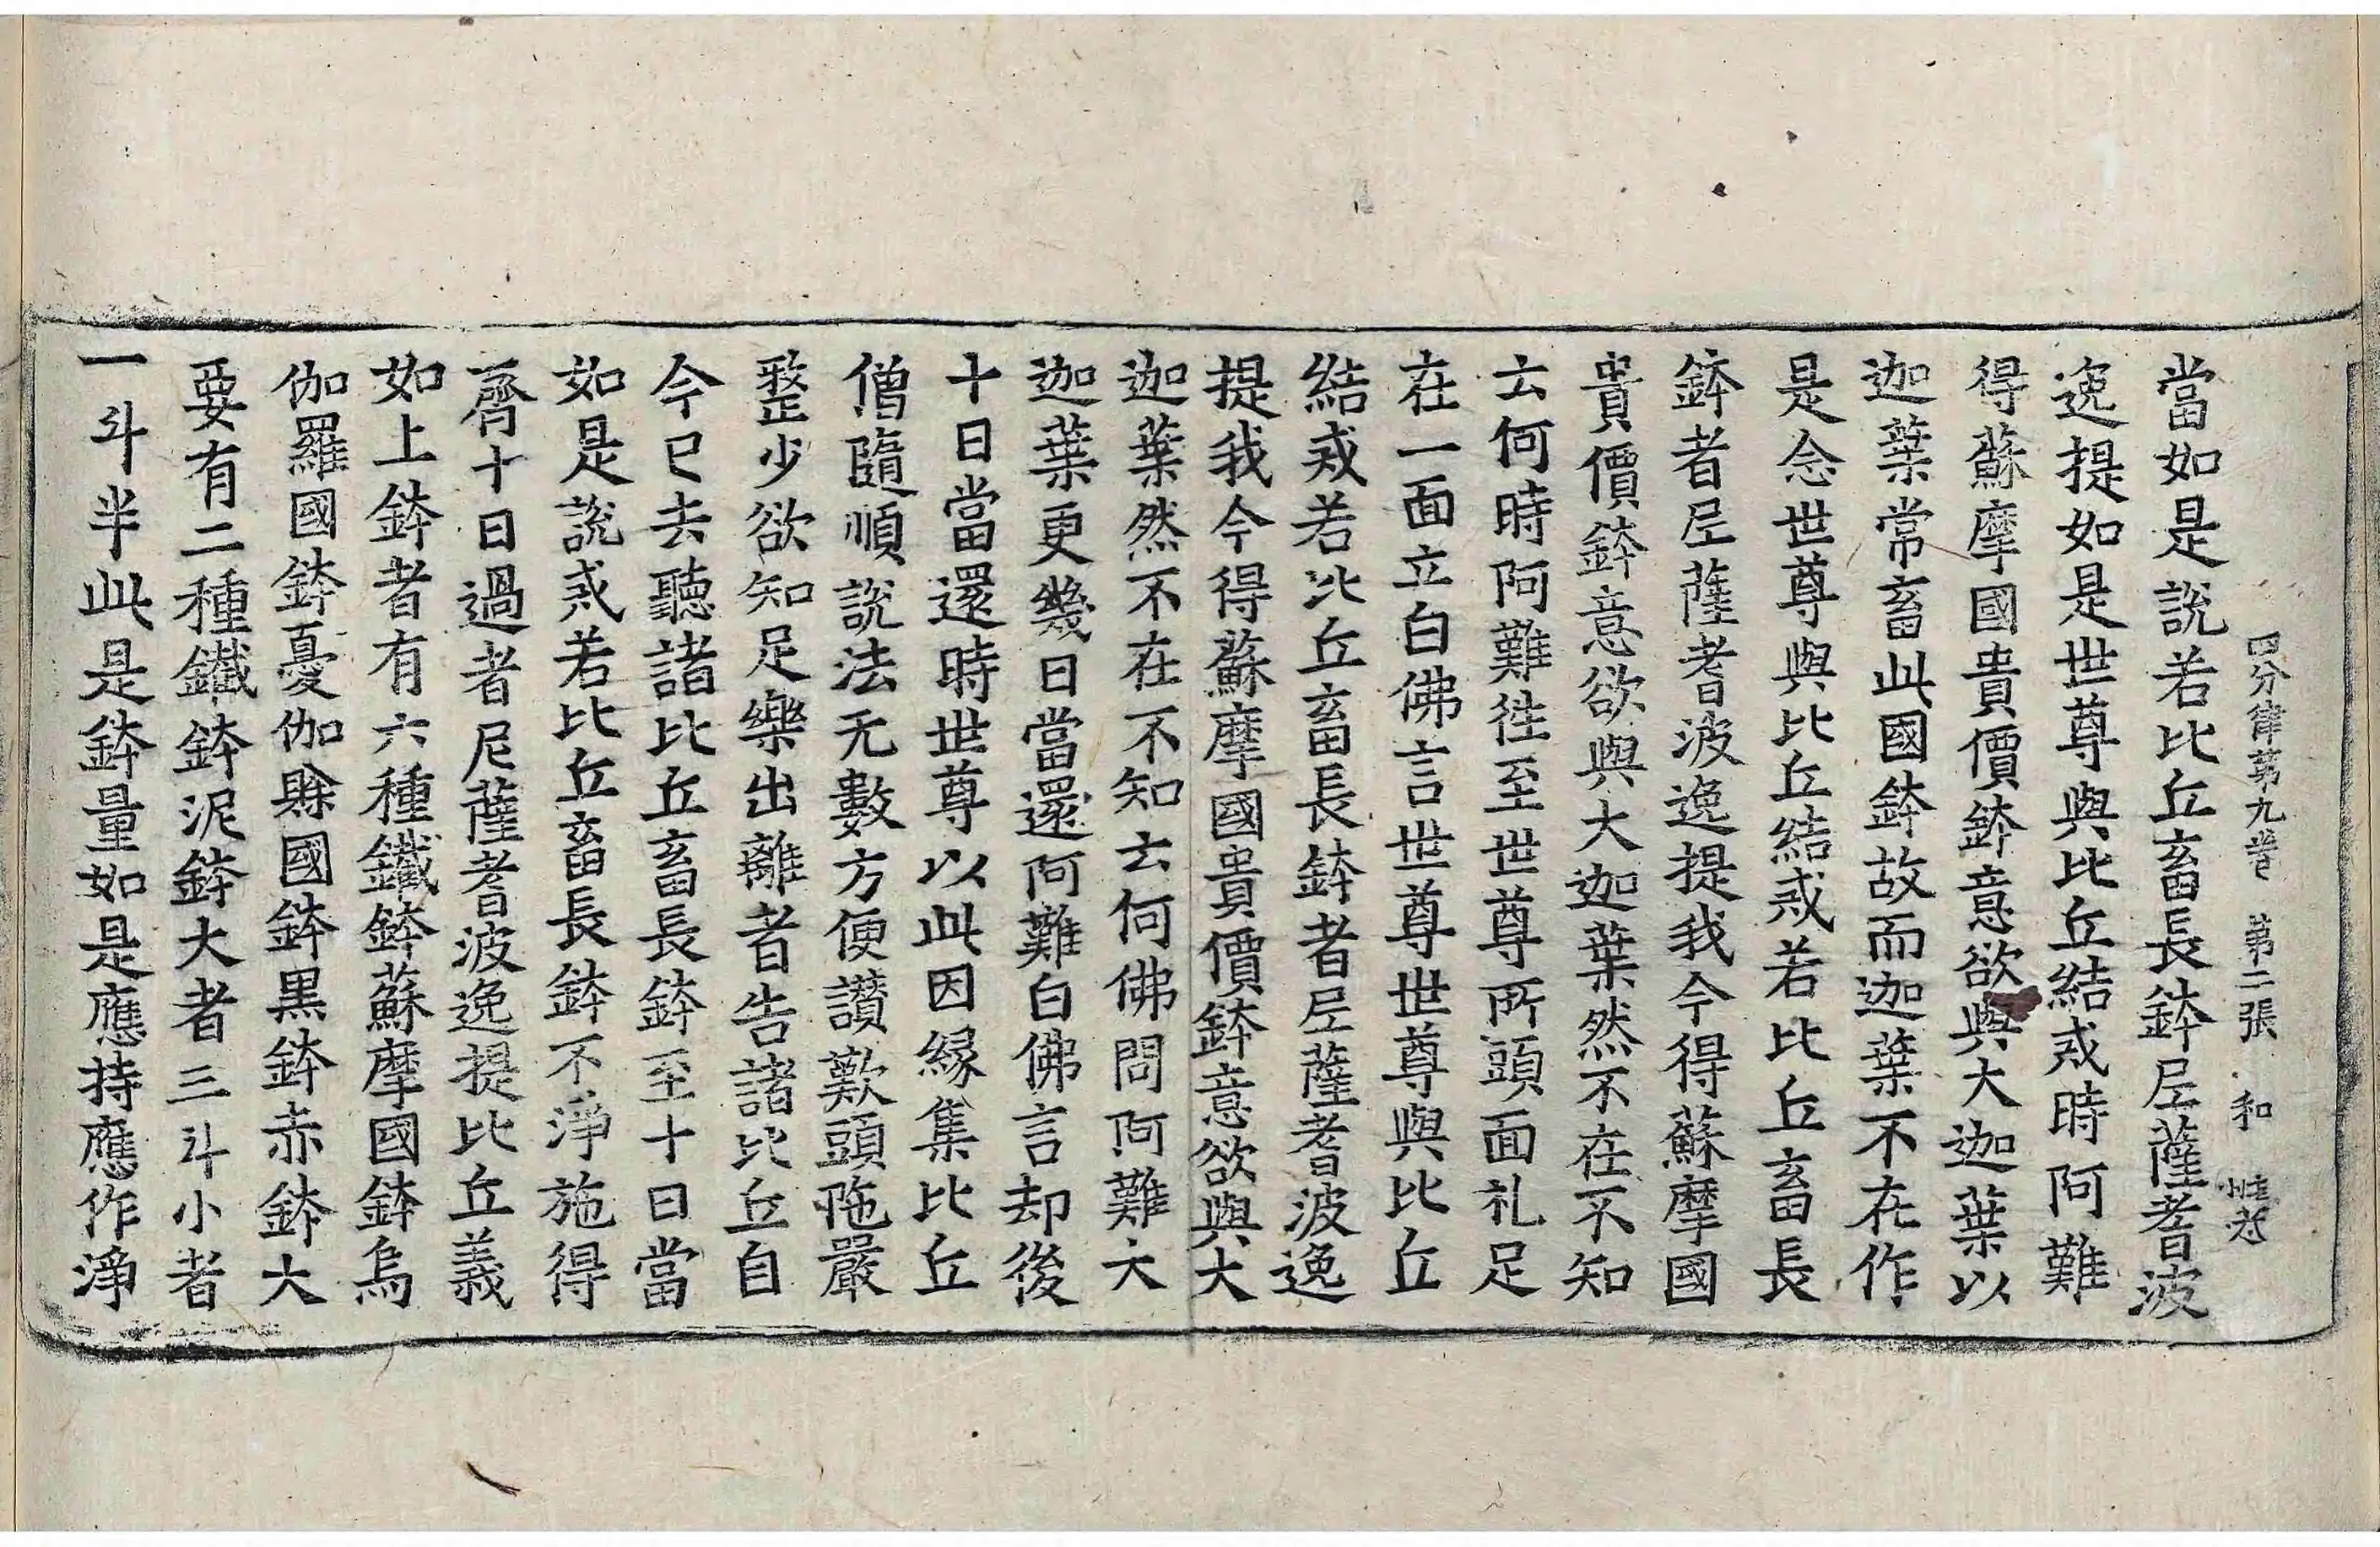 四分律第九卷 第二張 和
當如是說若比丘畜長鉢尼薩耆波
逸提如是世尊與比丘結戒時阿難
得蘇摩國貴價鉢意欲與大迦葉以
迦葉常畜此國鉢故而迦葉不在作
是念世尊與比丘結戒若比丘畜長
鉢者尼薩耆波逸提我今得蘇摩國
貴價鉢意欲與大迦葉然不在不知
云何時阿難往至世尊所頭面礼足
在一面立白佛言世尊世尊與比丘
結戒若比丘畜長鉢者尼薩耆波逸
提我今得蘇摩國貴價鉢意欲與大
迦葉然不在不知云何佛問阿難大
迦葉更幾日當還阿難白佛言却後
十日當還時世尊以此因緣集比丘
僧隨順說法无數方便讃歎頭陁嚴
整少欲知足樂出離者告諸比丘自
今已去聽諸比丘畜長鉢至十日當
如是說戒若比丘畜長鉢不淨施得
齊十日過者尼薩耆波逸提比丘義
如上鉢者有六種鐵鉢蘇摩國鉢烏
伽羅國鉢憂伽賒國鉢黒鉢赤鉢大
要有二種鐵鉢泥鉢大者三斗小者
一斗半此是鉢量如是應持應作淨